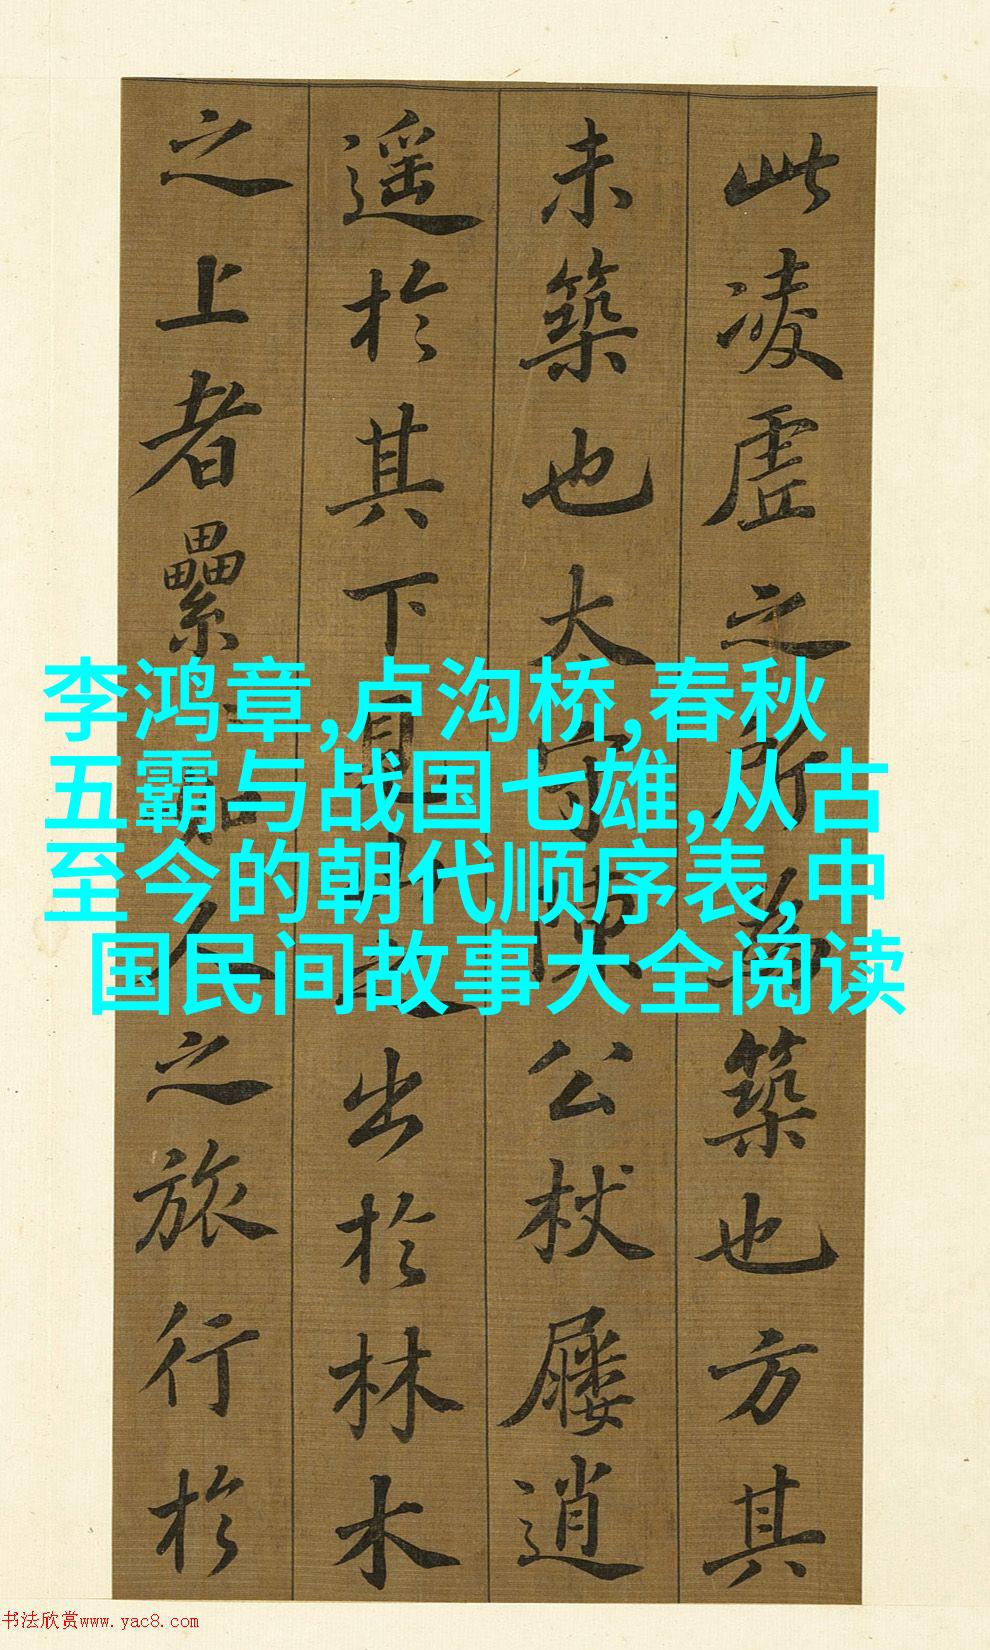 此凌虚之所為築也方其
未築也太守陳公杖屨逍
遥於其下見山之出於林木
之上者纍如人之旅行於
李鸿章,卢沟桥,春秋
五霸与战国七雄,从古
至今的朝代顺序表,中
国民间故事大全阅读
书法欣赏www.yac8.com